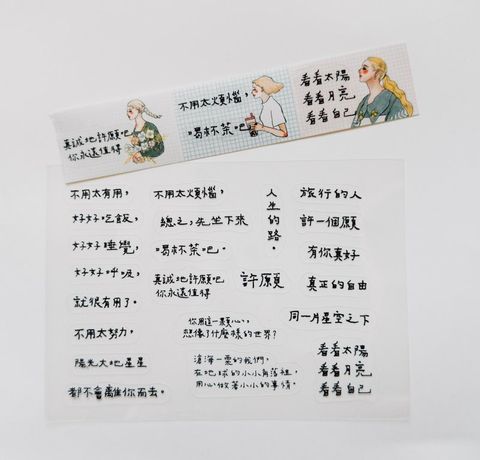 真誠地許願吧
你永遠值得
不用太煩惱，
喝杯茶吧
看看太陽
看看月亮
看看自己
不用太有用，
好好吃飯，
好好睡覺，
好好呼吸，
就很有用了。
不用太努力，
陽光大地星星
都不會離你而去。
不用太煩惱，
總之，先坐下來
喝杯茶吧。
真誠地許願吧
你永遠值得
許願
你用這一顆心，
想像了什麼樣的世界？
滄海一粟的我們，
在地球的小小角落裡，
用心做著小小的事情。
人生的路。
旅行的人
許一個願
有你真好
真正的自由
同一片星空之下
看看太陽
看看月亮
看看自己